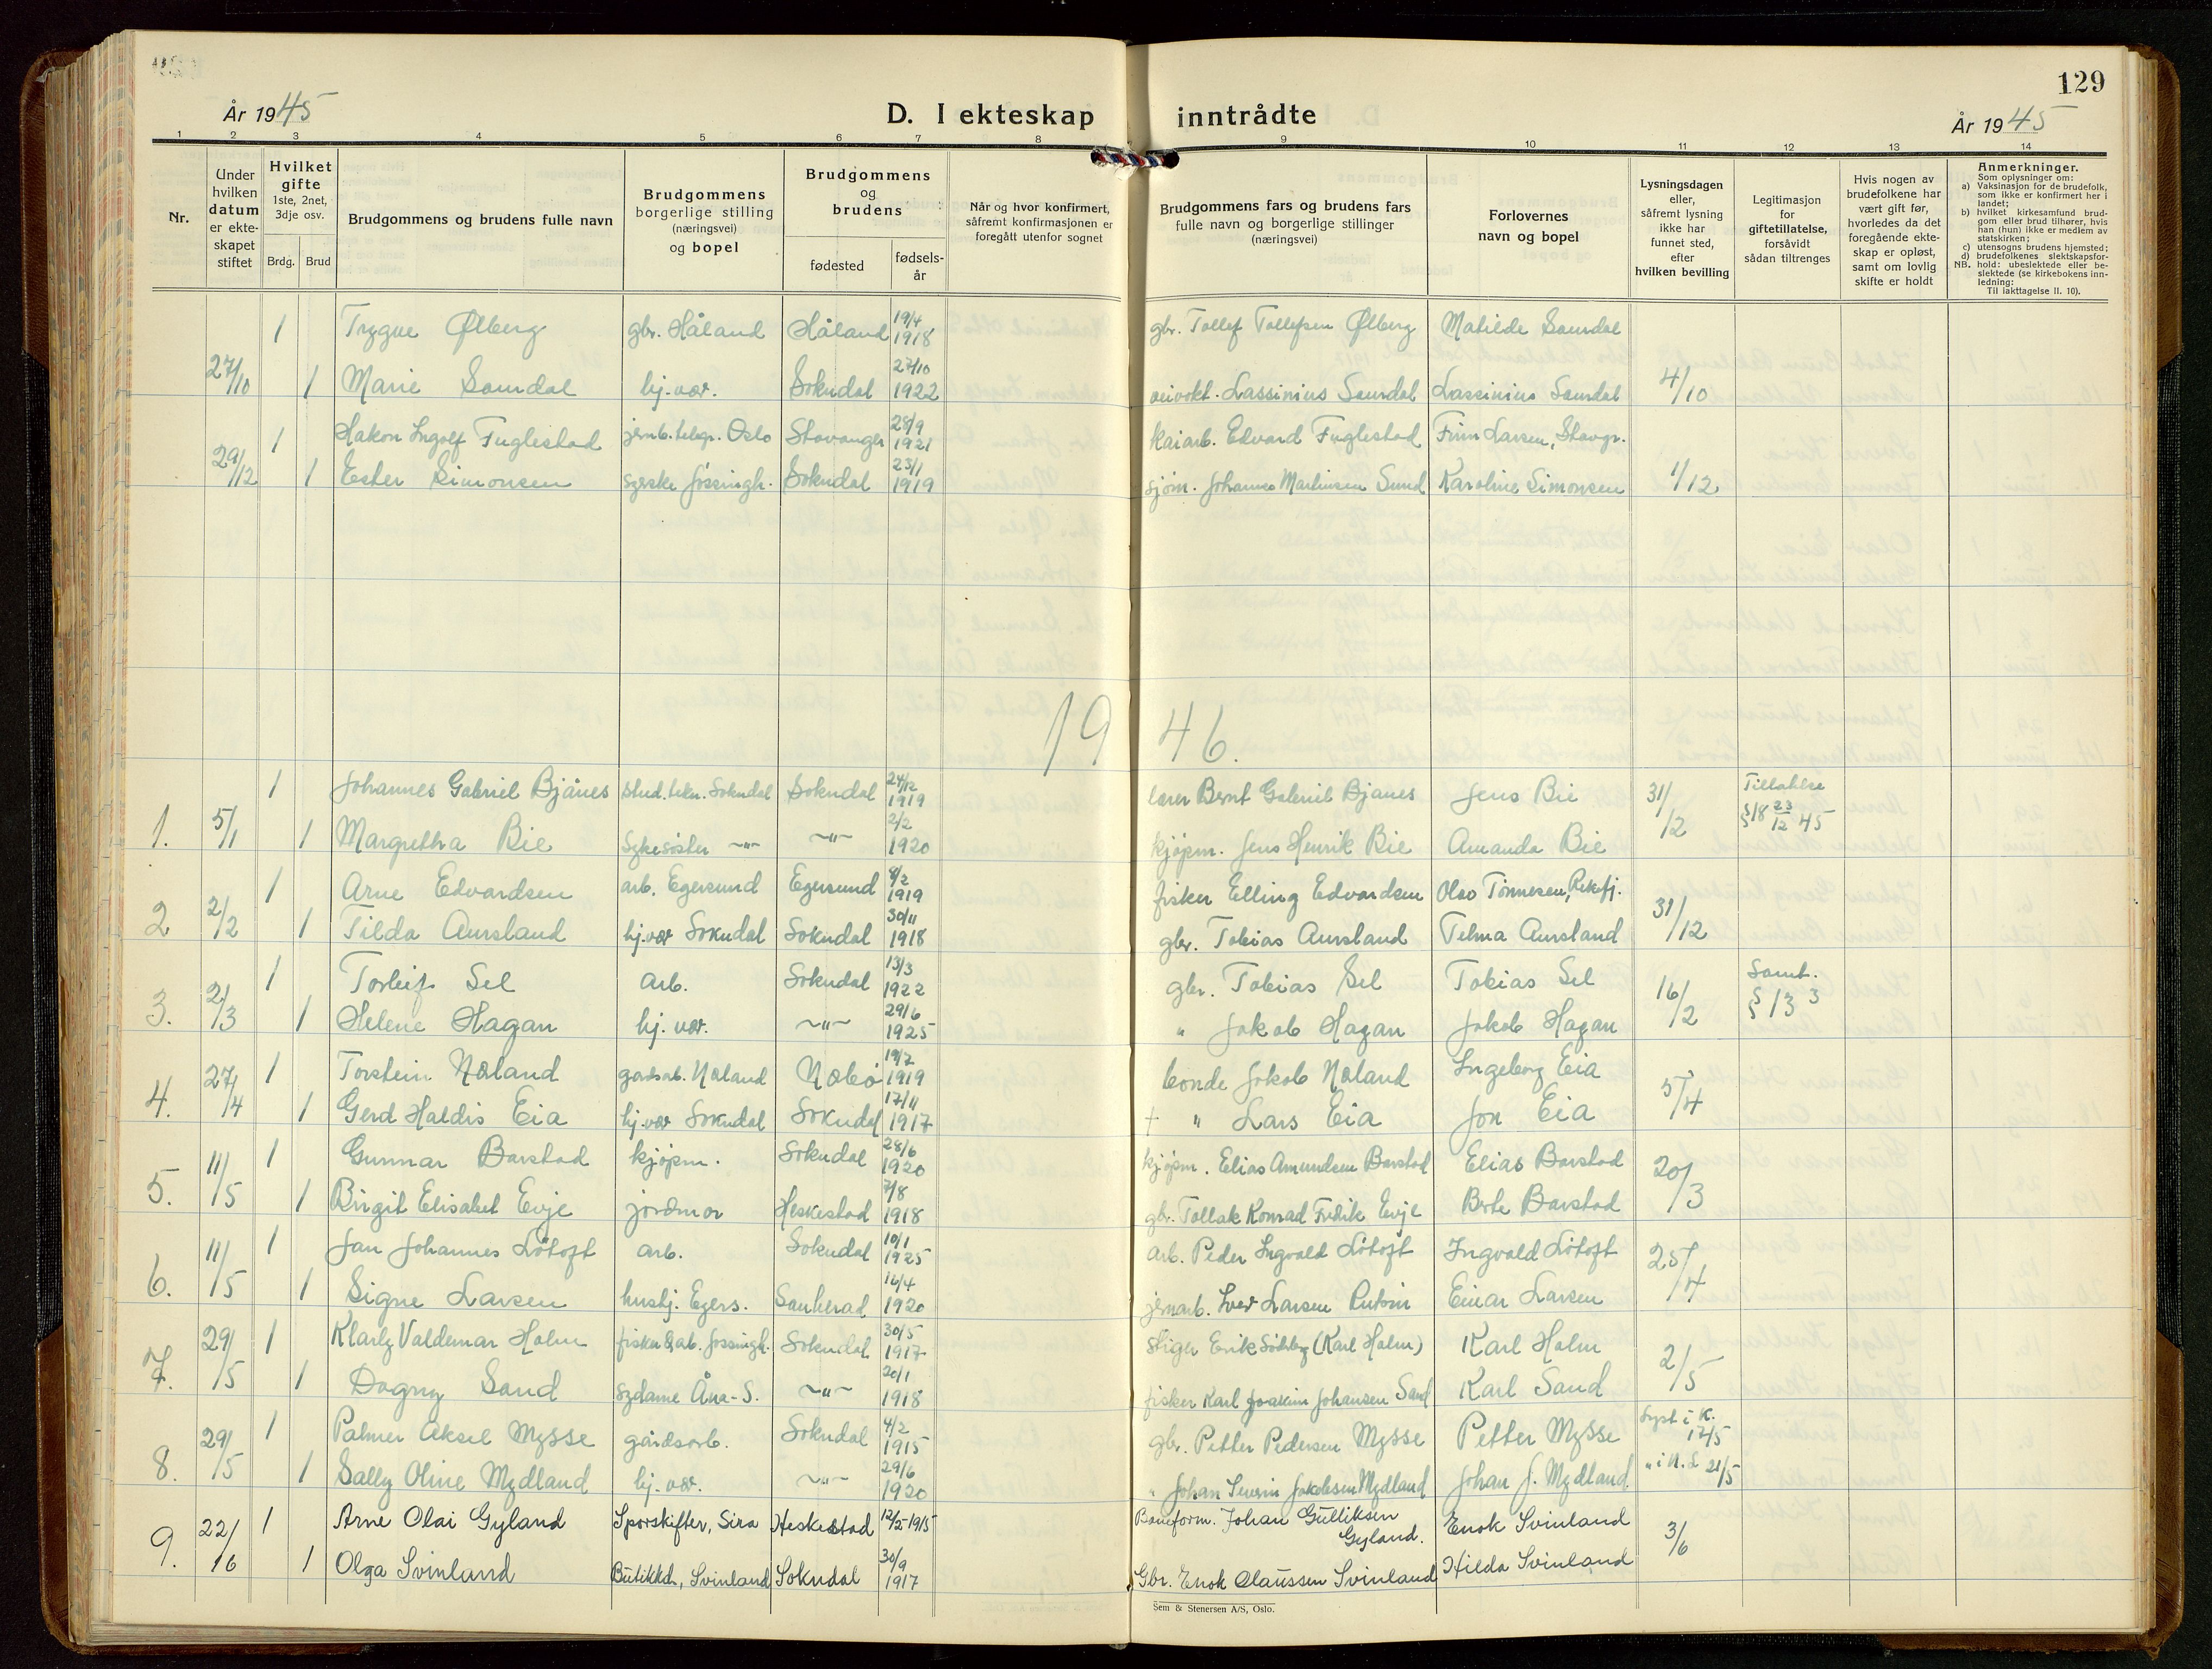 129
År 1945
D. I ekteskap inntrådte
År 1945
1 2 3 4 5 6 7 8 9 10 11 12 13 14
Nr.
Under hvilken datum er ekteskapet stiftet
Hvilket gifte 1ste, 2net, 3dje osv.
Brdg. Brud
Brudgommens og brudens fulle navn
Brudgommens borgerlige stilling (næringsvei) og bopel
Brudgommens og brudens
fødested
fødselsår
Når og hvor konfirmert, såfremt konfirmasjonen er foregått utenfor sognet
Brudgommens fars og brudens fars fulle navn og borgerlige stillinger (næringsvei)
Forlovernes navn og bopel
Lysningsdagen eller, såfremt lysning ikke har funnet sted, efter hvilken bevilling
Legitimasjon for giftetillatelse, forsåvidt sådan tiltrenges
Hvis nogen av brudefolkene har vært gift før, hvorledes da det foregående ekteskap er opløst, samt om lovlig skifte er holdt
Anmerkninger.
Som oplysninger om:
a) Vaksinasjon for de brudefolk, som ikke er konfirmert her i landet;
b) hvilket kirkesamfund brudgom eller brud tilhører, hvis han (hun) ikke er medlem av statskirken;
c) utensogns brudens hjemsted;
d) brudefolkenes slektskapsforhold: ubeslektede eller beslektede (se kirkebokens innledning:
NB. Til iakttagelse II. 10).
1 Trygve Ølberg gbr. Håland Håland 19/4 1918 gbr. Tollef Tollefsen Ølberg Matilde Saurdal
27/10 1 Marie Saurdal hj.vær. Sokndal 27/10 1922 veivokt. Lassinius Saurdal Lassinius Saurdal 4/10
1 Håkon Ingolf Fuglestad jernb.telegr. Oslo Stavanger 28/9 1921 kaiarb. Edvard Fuglestad Finn Larsen, Stavgr.
29/12 1 Ester Simonsen syerske Jøssingh. Sokndal 23/1 1919 sjøm. Johannes Martinsen Sund Karoline Simonsen 1/12
1946.
1 Johannes Gabriel Bjånes stud.tekn. Sokndal Sokndal 24/12 1919 lærer Bernt Gabriel Bjånes Jens Bie 31/12 Tillatelse
1. 5/1 1 Margretha Bie Sykesøster -"- -"- 2/2 1920 kjøpm. Jens Henrik Bie Amanda Bie §18 23/12 45
1 Arne Edvardsen arb. Egersund Egersund 8/2 1919 fisker Elling Edvardsen Olav Tønnesen, Rekefj.
2 2/2 1 Tilda Aursland hj.vær Sokndal Sokndal 30/11 1918 gbr. Tobias Aursland Telma Aursland 31/12
1 Torleif Sel arb. Sokndal 13/3 1922 gbr. Tobias Sel Tobias Sel 16/2 Samt.
3. 2/3 1 Helene Hagan hj. vær. -"- 29/6 1925 " Jakob Hagan Jakob Hagan § 13 3
1 Torstein Næland gardsarb. Næland Nærbø 1919 bonde Jakob Næland Ingeborg Eia
4. 27/4 1 Gerd Haldis Eia hj.vær Sokndal Sokndal 17/11 1917 + " Lars Eia Jon Eia 5/4
1 Gunnar Barstad kjøpm. Sokndal 28/6 1920 kjøpm. Elias Amundsen Barstad Elias Barstad
5. 11/5 1 Birgit Elisabet Evje jordmor Heskestad 7/8 1918 gbr. Tollak Konrad Fredrik Evje Berte Barstad 20/3
1 Jan Johannes Løtoft arb. Sokndal 10/1 1925 arb. Peder Ingvald Løtoft Ingvald Løtoft
6. 11/5 1 Signe Larsen hushj. Egers. Sauherad 16/4 1920 jernarb. Iver Larsen Einar Larsen 25/4
1 Klarly Valdemar Holm fisker & arb. Jøssingh. Sokndal 30/5 1917 stiger Erik (Karl Holm) Karl Holm
7. 29/5 1 Dagny Sand sydame Åna-S. -"- 20/1 1918 fisker Karl Joakim Johansen Sand Karl Sand 2/5
1 Palmer Aksel Mysse gårdsarb. Sokndal 4/2 1915 gbr. Petter Pedersen Mysse Petter Mysse Lyst i K. 12/5
8. 29/5 1 Sally Oline Mydland hj. vær. -"- 29/6 1920 " Johan Severin Jakobsen Mydland Johan J. Mydland. " i N. L 21/5
9. 22/6 1 Arne Olai Gyland Sporskifter, Sira Heskestad 12/5 1915 Baneform. Johan Gulliksen Gyland. Enok Svinland 3/6
1 Olga Svinland Butikkd., Svinland Sokndal 30/9 1917 Gbr. Enok Claussen Svinland Hilda Svinland
Sem & Stenersen A/S, Oslo.